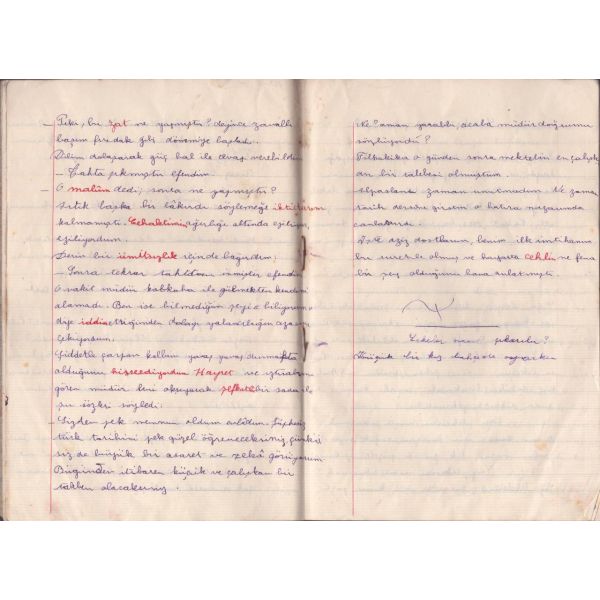 — Peki, bu zat ne yapmıştır? deyince zavallı
başım fırıldak gibi dönmiye başladı.
Dilim dolaşarak güç hal ile cevap verebildim
— Tahta çıkmıştır efendim.
— O malûm dedi, sonra ne yapmıştır?
Artık başka bir lâkırdı söylemeğe iktidarım
kalmamıştı. Cehaletimin ağırlığı altında eziliyor,
eziliyordum.
Derin bir ümitsizlik içinde bağırdım:
— Sonra tekrar tahttan inmiştir efendim
O vakit müdür kahkaha ile gülmekten kendini
alamadı. Ben ise bilmediğim şeyi biliyorum
diye iddia ettiğimden dolayı yalancılığın cezasını
çekiyordum.
Şiddetle çarpan kalbim yavaş yavaş durmakta
olduğunu hissediyordum Hayret ve ıztırabımı
gören müdür beni okşayarak şefkatli bir sada ile
şu sözleri söyledi:
— Sizden pek memnun oldum evlâdım. Şüphesiz
türk tarihini pek güzel öğreneceksiniz, çünkü
siz de büyük bir cesaret ve zekâ görüyorum
Bugünden itibaren küçük ve çalışkan bir
talebem olacaksınız.
Ne? aman yarabbi, acaba müdür doğrumu
söyliyordu?
Filhakika o günden sonra mektebin en çalışkan
bir talebesi olmuştum.
Alpaslanı zaman unutmadım. Ne zaman
tarih dersine girsem o hatıra nazarımda
canlanırdı.
İşte aziz dostlarım, benim ilk imtihanım
bu suretle olmuş ve hayatta cehlin ne fena
bir şey olduğunu bana anlatmıştı
nasıl çıkarılır?
Küçük bir kız bahçede oynarken